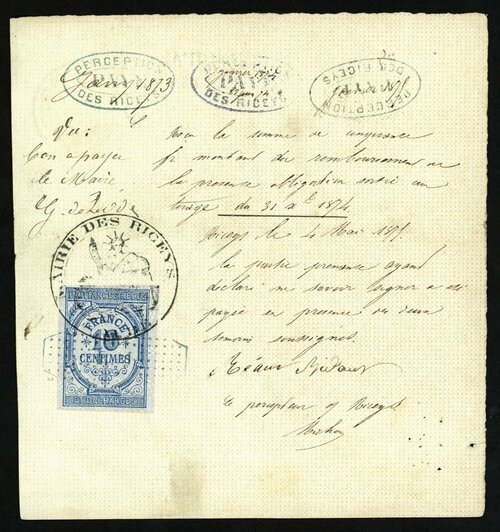 PERCEPTION
PAYÉ
DES RICEYS
Janv 1873
PERCEPTION
PAYÉ
DES RICEYS
janvier 1874
PERCEPTION
PAYÉ
DES RICEYS
janvier 1875
Vu:
Bon à payer
le Maire
Pour la somme de cinquante
f montant du remboursement de
la présente obligation sortie au
tirage du 31 Xbre 1874
Riceys le 4 Mai 1875
la partie prenante ayant
déclaré ne savoir signer a été
payée en présence de deux
témoins soussignés
MAIRIE DES RICEYS
QUITTANCES REÇUS
FRANCE
10
CENTIMES
ET DECHARGES
Le percepteur des Riceys